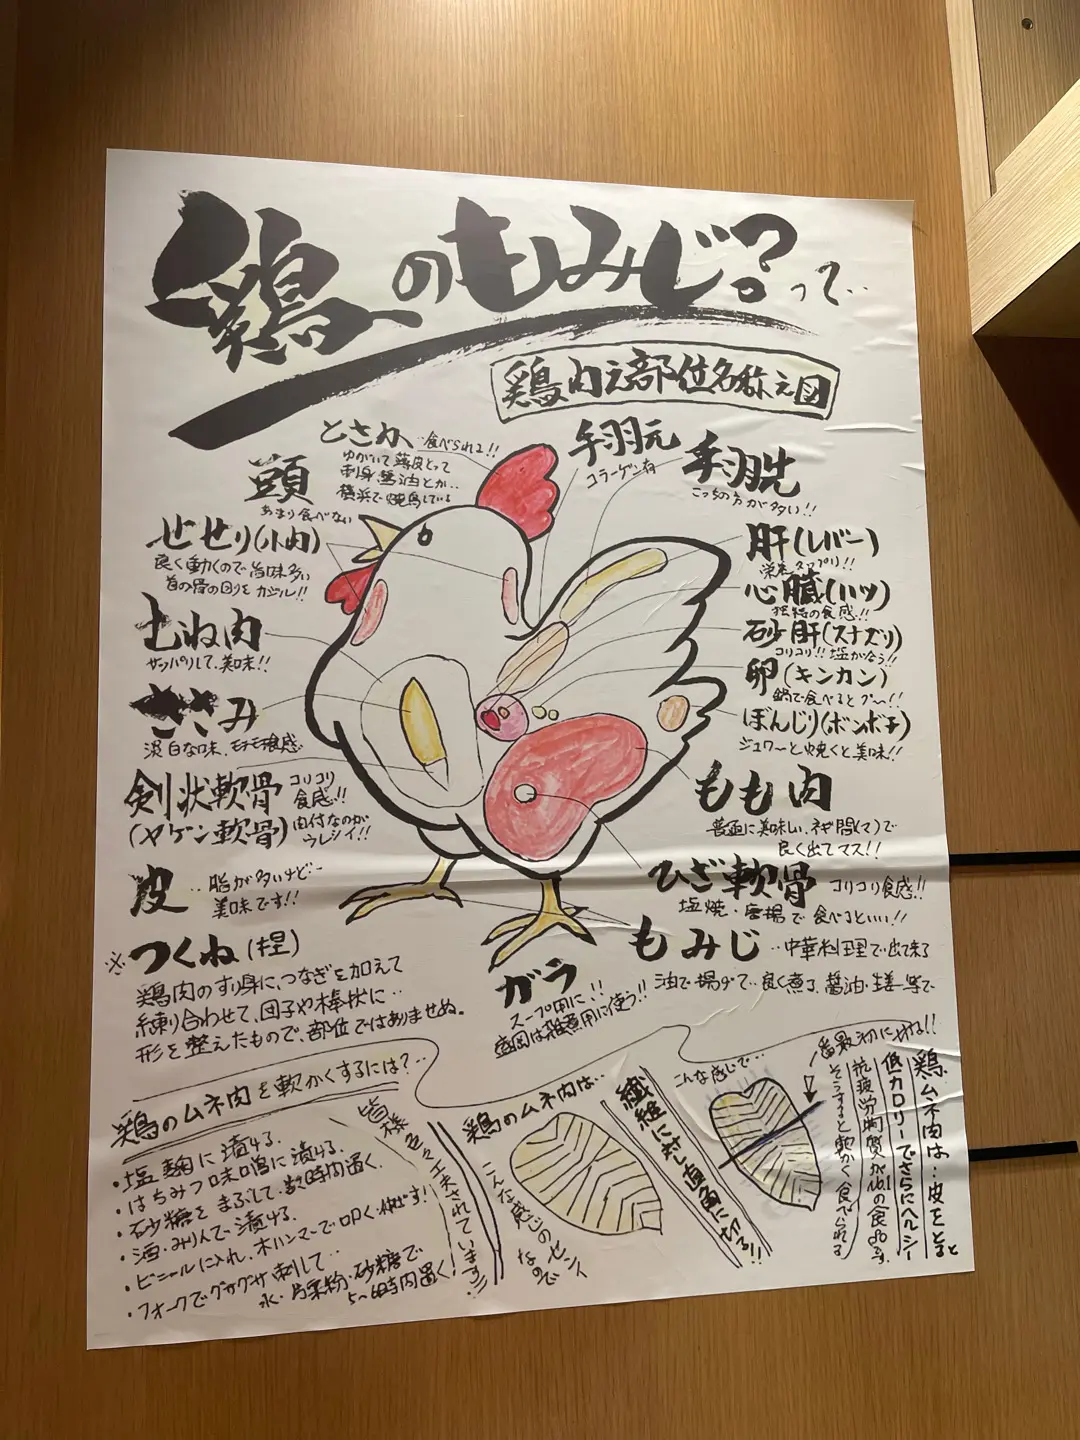 鶏のもみじ?って..
鶏肉之部位名称之図
とさか..食べられる!!
ゆがいて薄皮とって
刺身醤油とか..
横浜で焼鳥している
頭
あまり食べない
せせり(小肉)
良く動くので旨味多い
首の骨の回りをカジル!!
むね肉
サッパリして、美味!!
ささみ
淡白な味、モチモチ食感
剣状軟骨
(ヤゲン軟骨)
コリコリ
食感!!
肉付なのが
ウレシイ!!
皮
..脂が多いけど..
美味です!!
手羽元
コラーゲン有
手羽先
こっちの方が多い!!
肝(レバー)
栄養タップリ!!
心臓(ハツ)
独特の食感!!
砂肝(スナズリ)
コリコリ!!塩が合う!!
卵(キンカン)
鍋で食べるとグ〜!!
ぼんじり(ボンボチ)
ジュワーと焼くと美味!!
もも肉
普通に美味しい、
良く出てマス!!
ひざ軟骨 コリコリ食感!!
塩焼・唐揚で食べるといい!!
もみじ ..中華料理で出て来る
油で揚げて..良く煮て、醤油・生姜等で
ガラ
スープ用に!!
盛岡は雑煮用に使う!!
※つくね(捏)
鶏肉のすり身に、つなぎを加えて
練り合わせて、団子や棒状に..
形を整えたもので、部位ではありませぬ。
鶏のムネ肉を軟かくするには?..
・塩麹に漬ける.
・はちみつ味噌に漬ける.
・砂糖をまぶして、数時間置く.
・酒・みりんで漬ける.
・ビニールに入れ、木ハンマーで叩く・伸ばす!
・フォークでグサグサ刺して..
水・片栗粉・砂糖で
5〜6時間置く!
皆様色々工夫されています!!
鶏のムネ肉は..
こんな感じのセンイなので
繊維にたいし直角に切る!!
こんな感じで..
一番最初に分ける!!
鶏ムネ肉は..皮をとると
低カロリーでさらにヘルシー
抗疲労物質がNo.1の食品です.
そうすると軟かく食べられる